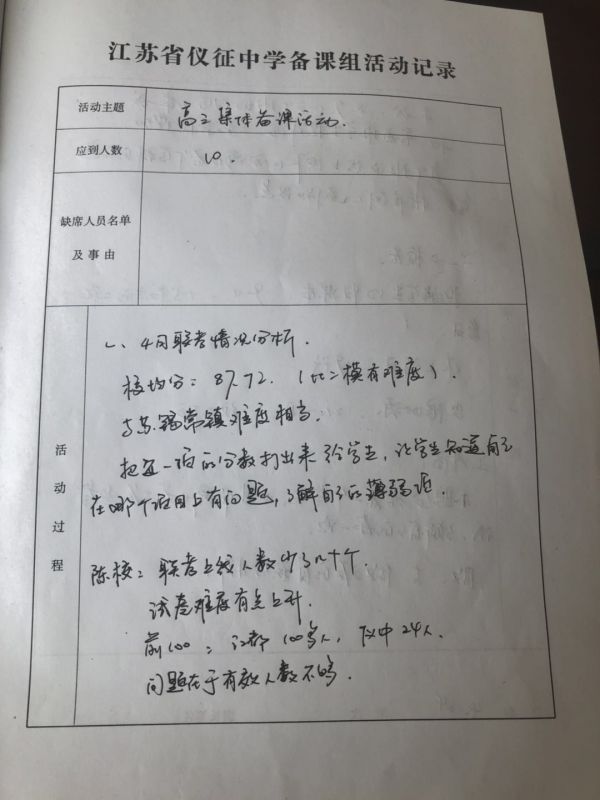 江苏省仪征中学备课组活动记录
活动主题
高三集体备课活动.
应到人数
10.
缺席人员名单
及事由
活动过程
一、4月联考情况分析.
校均分: 87.72. (比二模有难度).
与苏锡常镇难度相当.
把每一项的分数打出来给学生, 让学生知道自己
在哪个项目上有问题, 了解自己的薄弱项.
陈校: 联考上线人数少了几十个.
试卷难度有点上升.
前100: 江都100多人, 仪中24人.
问题在于有效人数不够.